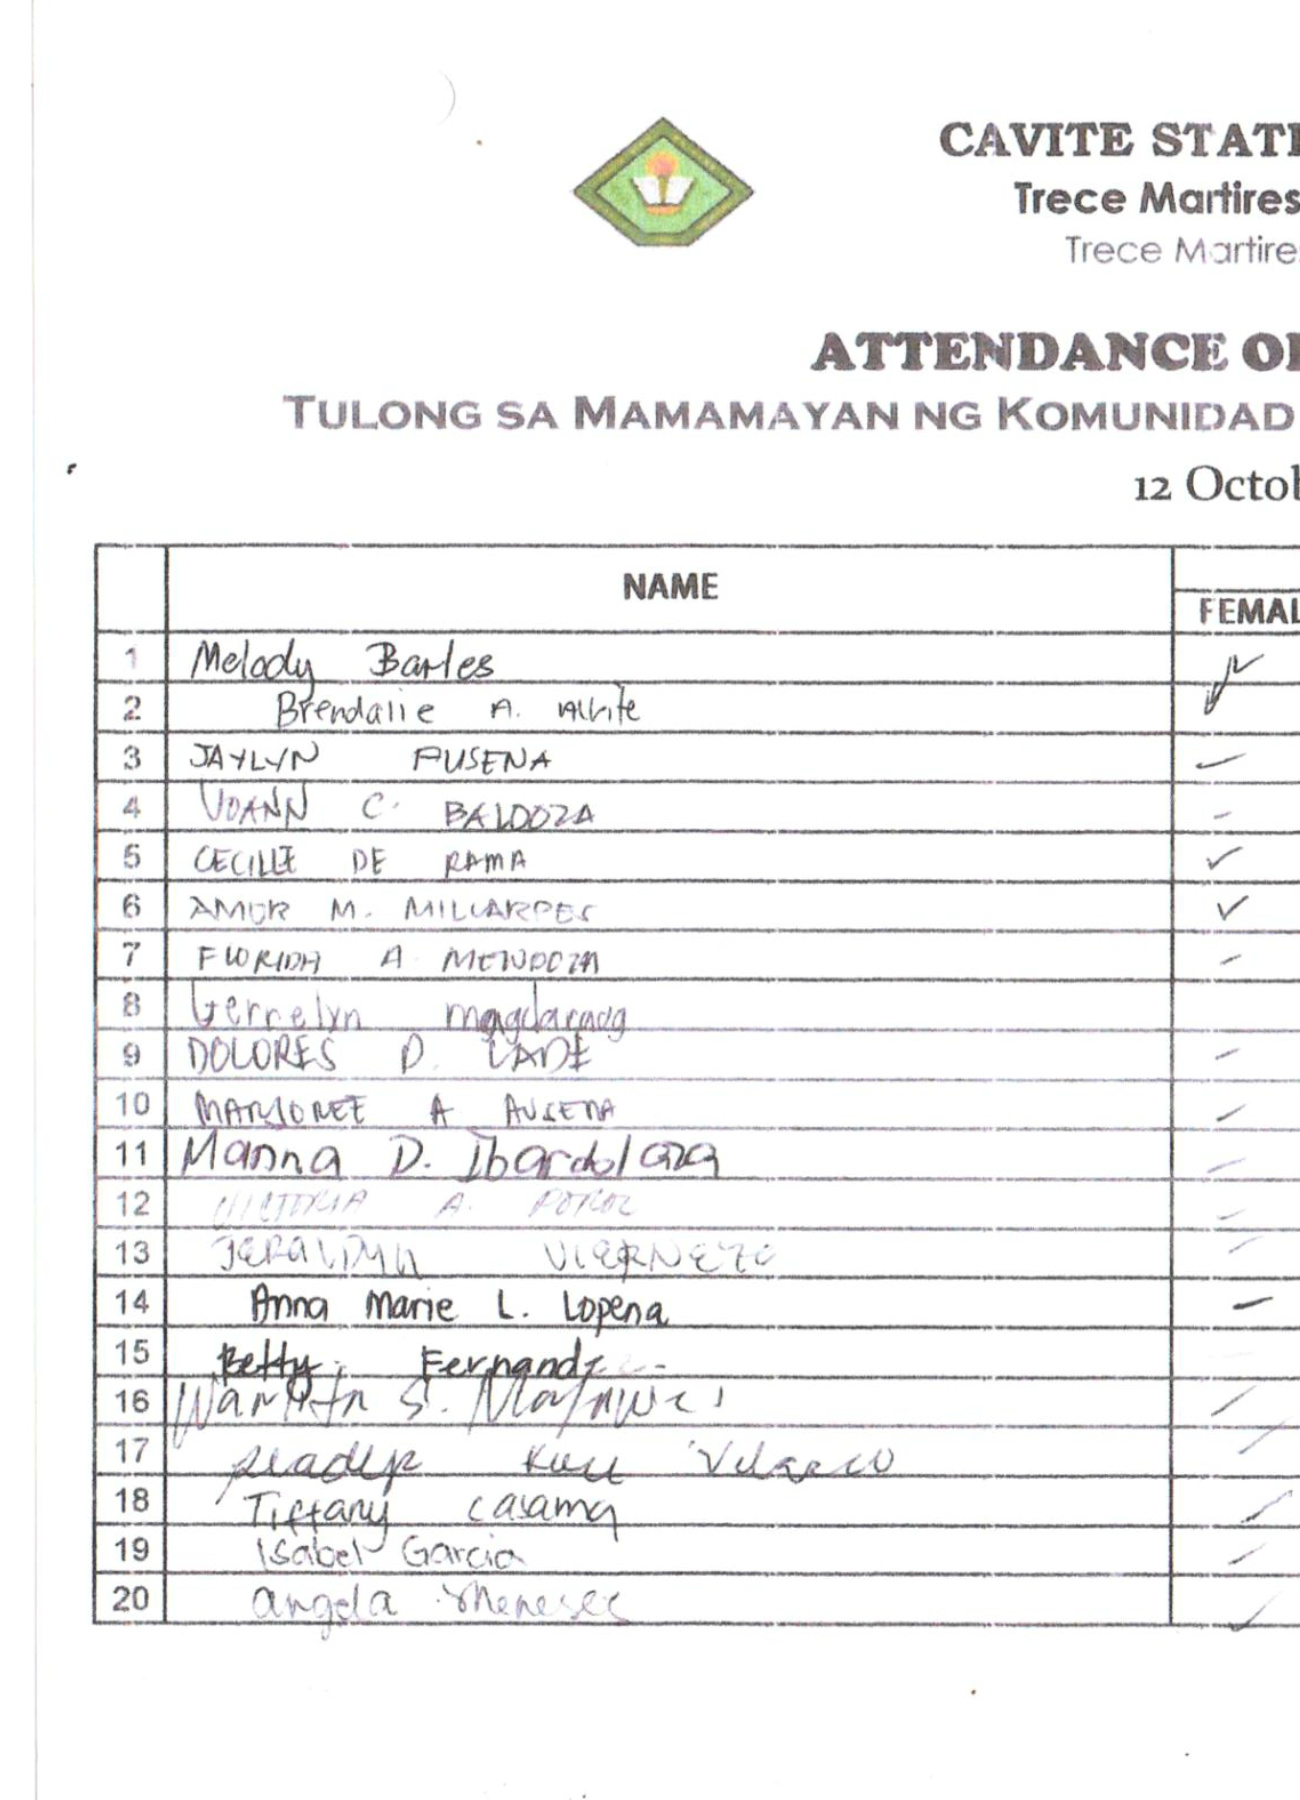 CAVITE STATE
Trece Martires
Trece Martire
ATTENDANCE OF
TULONG SA MAMAMAYAN NG KOMUNIDAD
12 Octob
NAME
FEMAL
1 Melody Barles
2 Brendalie A. Albite
3 JAYLYN AUSENA
4 VOANN C. BALDOZA
5 CECILLE DE RAMA
6 AMOR M. MILLARPES
7 FLORIDA A MENDOZA
8 Gerrelyn magdaraog
9 DOLORES D. LADE
10 MARJOREE A AUSENA
11 D. Ibardolaza
12 VICTORIA A.
13 JERALDYN VIERNEZO
14 Anna Marie L. Lopena
15 Betty Fernandez
16 S.
17 Velasco
18 Tiffany Casama
19 Isabel Garcia
20 angela Meneses